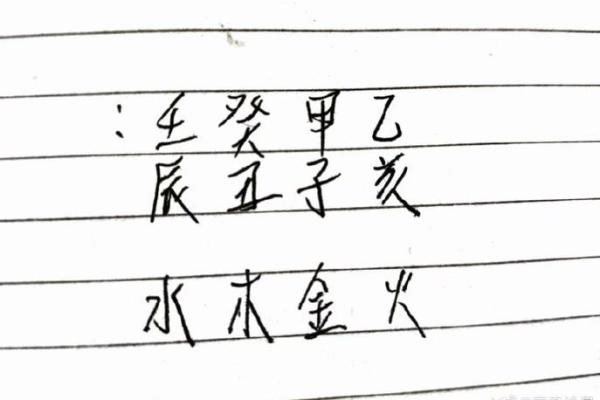 : 壬癸甲乙
辰丑子亥
水木金火